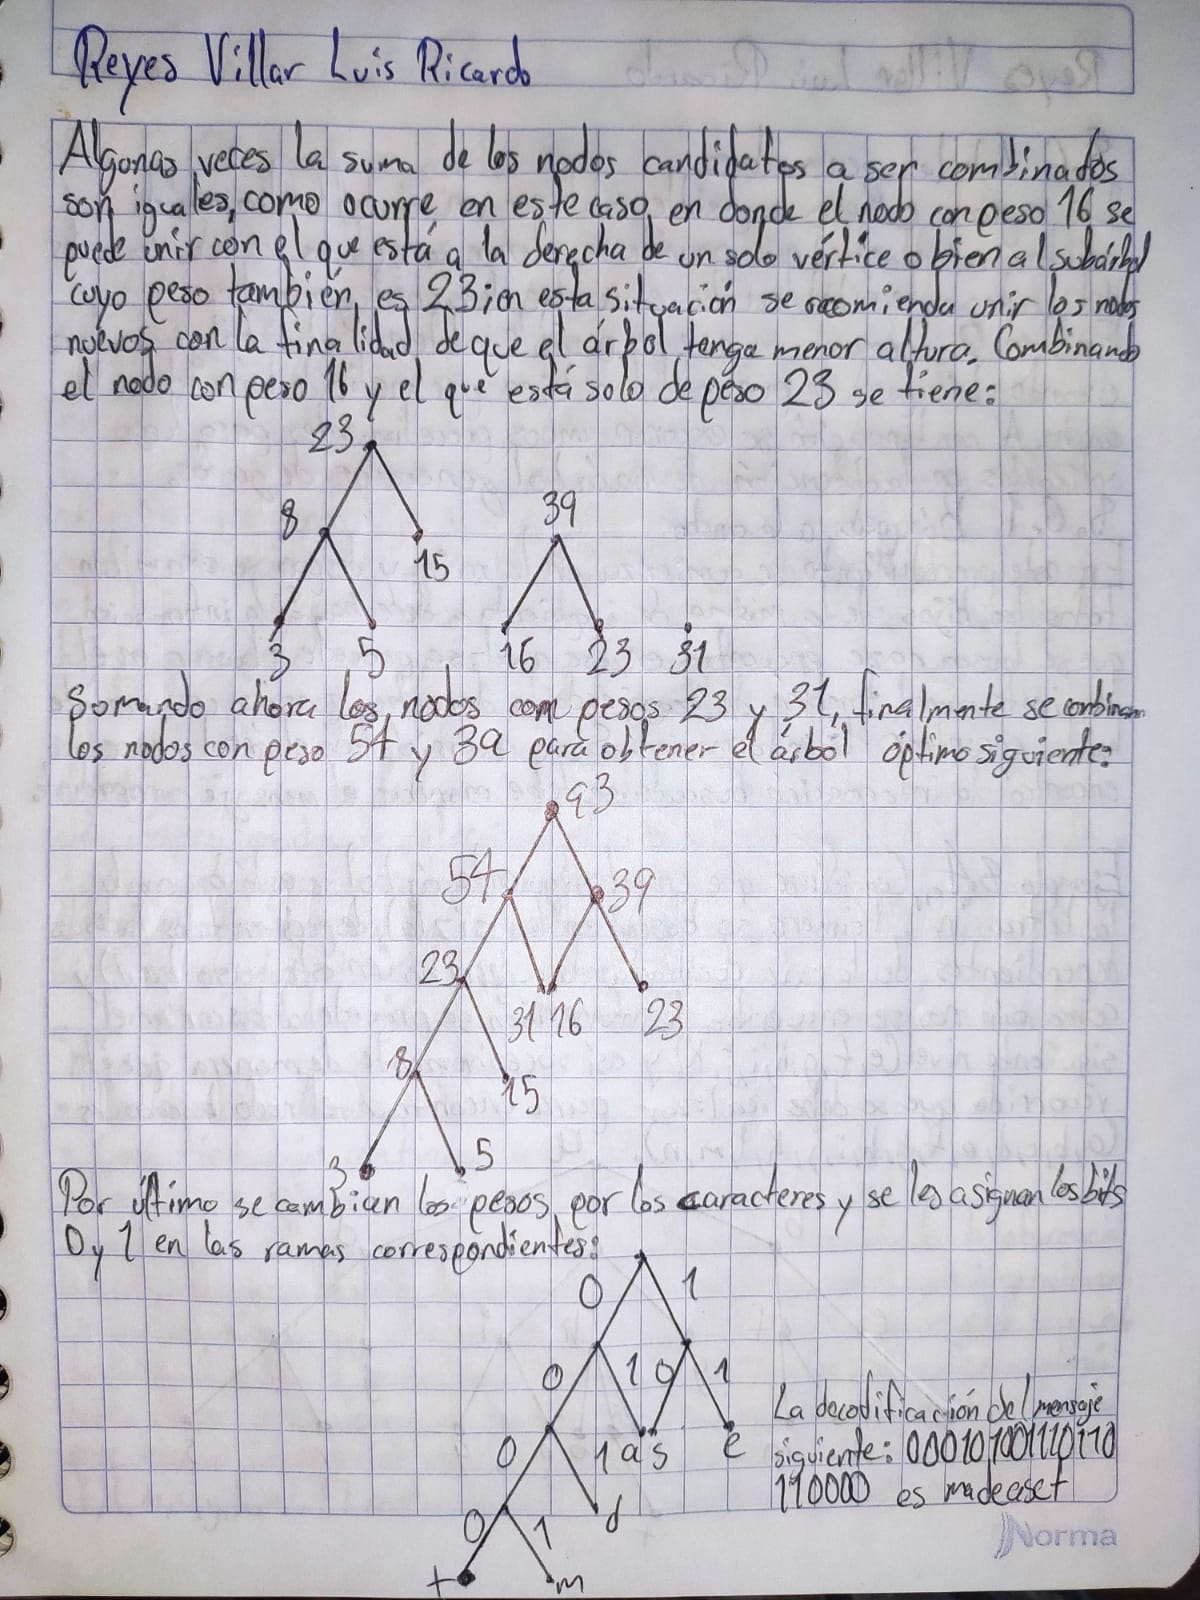 Reyes Villar Luis Ricardo
Algunas veces la suma de los nodos candidatos a ser combinados
son iguales, como ocurre en este caso, en donde el nodo con peso 16 se
puede unir con el que está a la derecha de un solo vértice o bien al subárbol
cuyo peso también es 23; en esta situación se recomienda unir los nodos
nuevos con la finalidad de que el árbol tenga menor altura. Combinando
el nodo con peso 16 y el que está solo de peso 23 se tiene:
23
8
39
15
3 5 16 23 31
Sumando ahora los nodos com pesos 23 y 31, finalmente se combinan
los nodos con peso 54 y 39 para obtener el árbol óptimo siguiente:
93
54 39
23
31 16 23
8
15
3 5
Por último se cambian los pesos por los caracteres y se les asignan los bits
0 y 1 en las ramas correspondientes:
0 1
0 1 0 1
0 1 a s e
0 1 d
t m
La decodificación del mensaje
siguiente: 000101001110110
110000 es madeaset
Norma